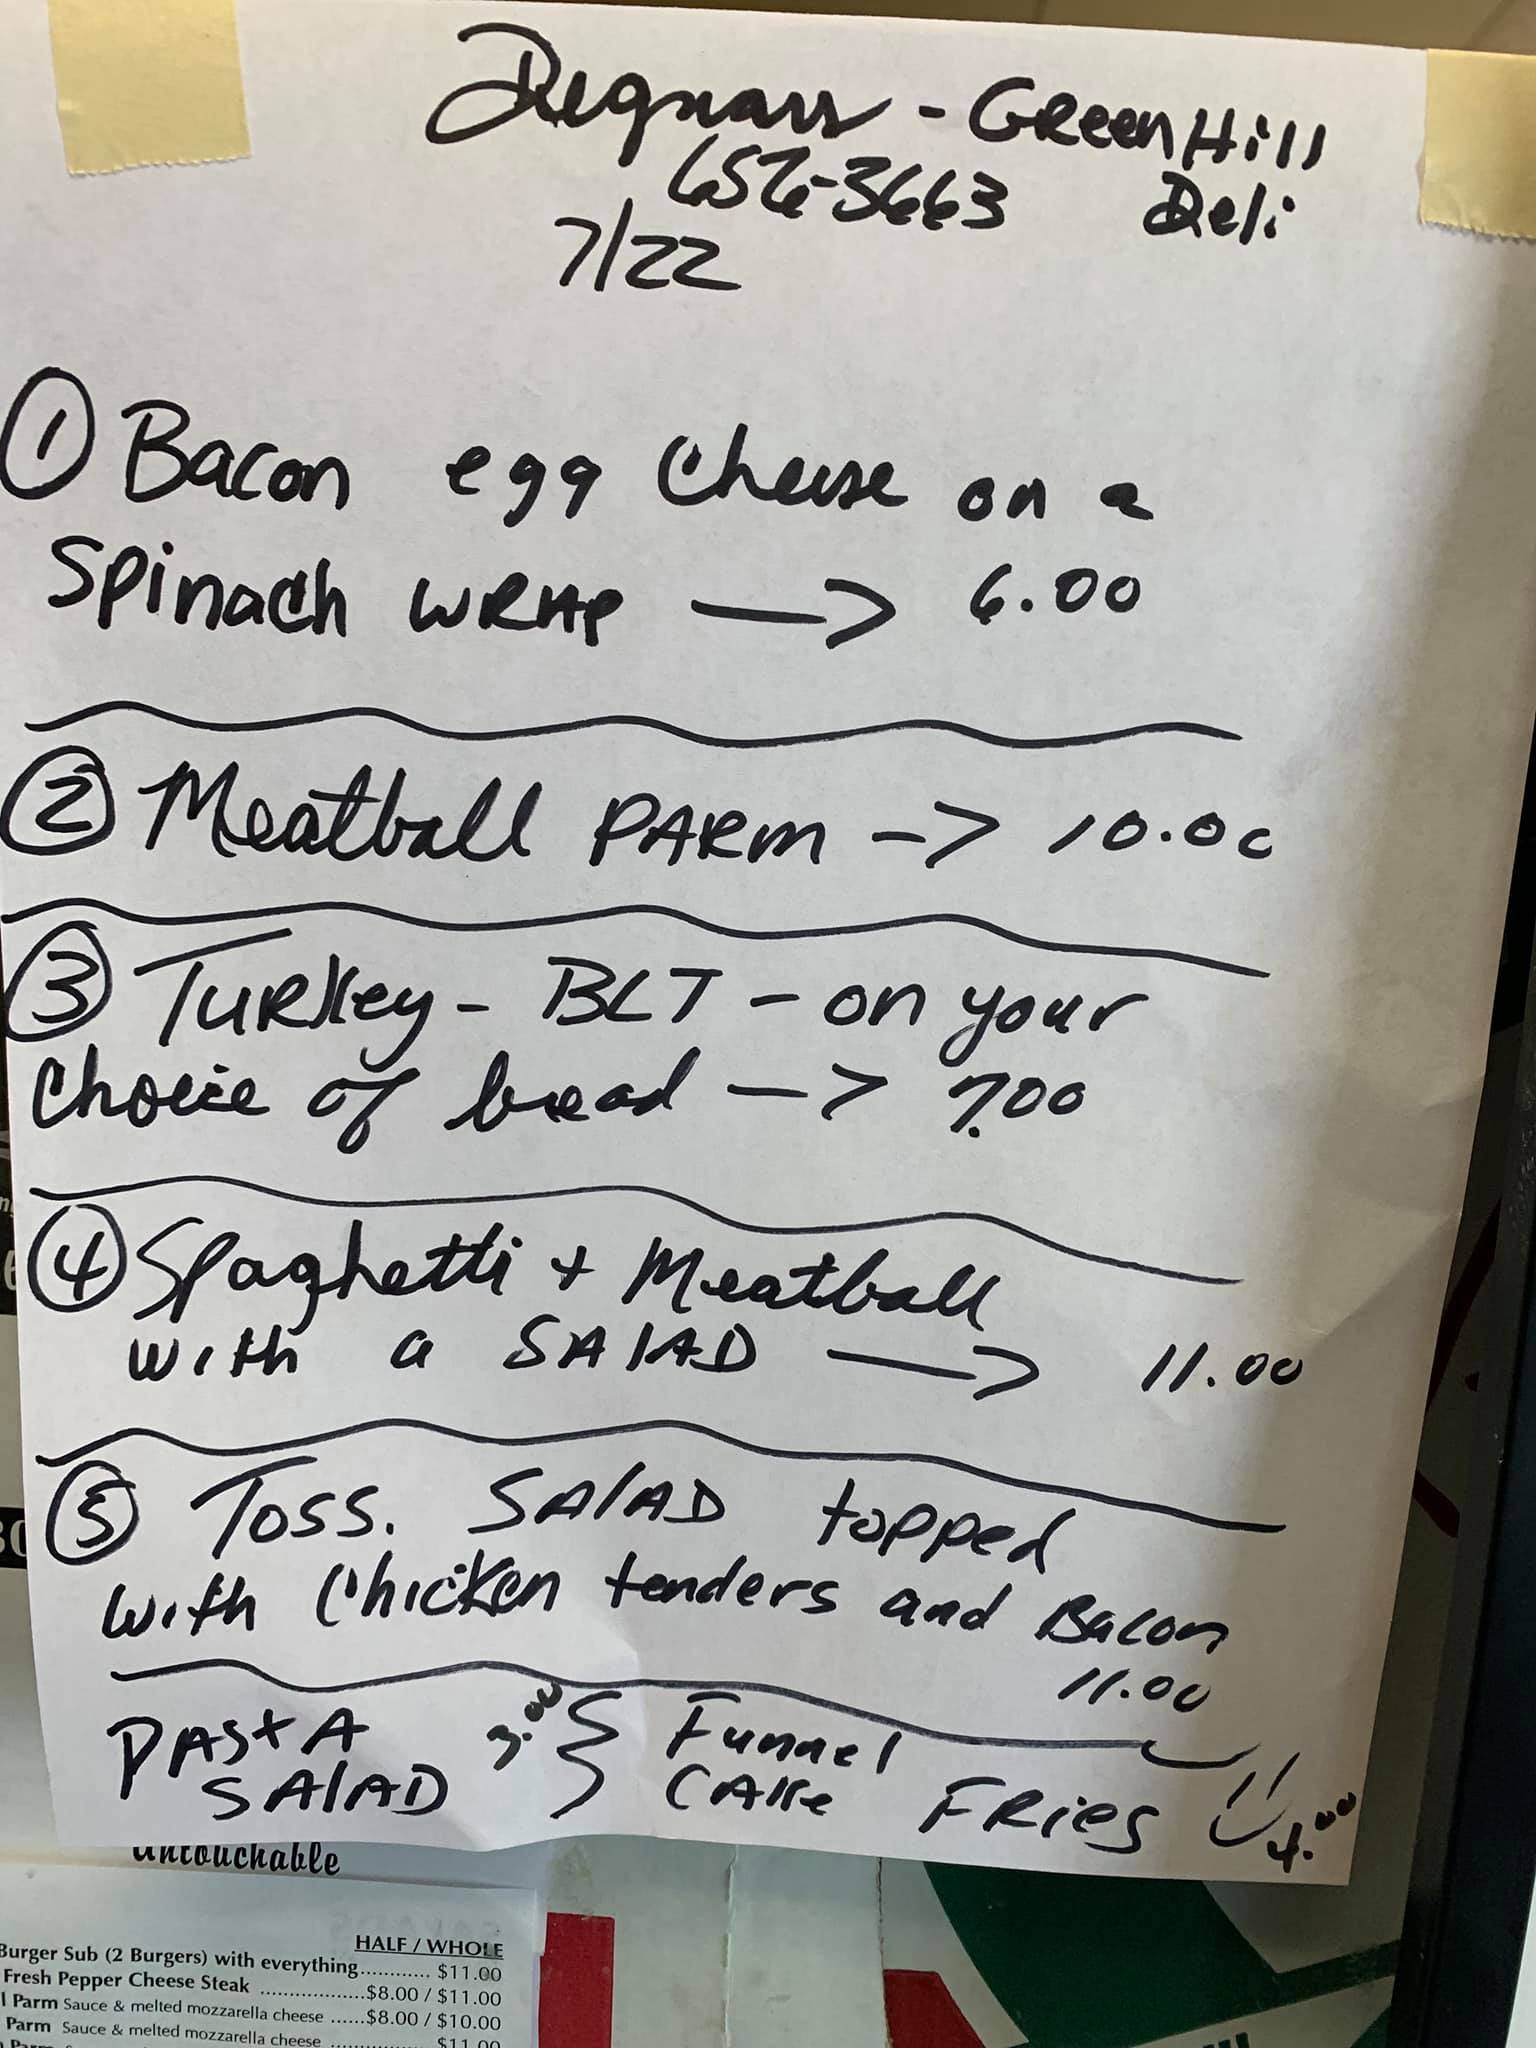 Degnars - Green Hill
656-3663 Deli
7/22
① Bacon egg cheese on a
Spinach WRAP —> 6.00
② Meatball PARM -> 10.00
③ TURKey - BLT - on your
Choice of bread —> 7.00
④ Spaghetti + Meatball
with a SALAD —> 11.00
⑤ Toss. SALAD topped
with Chicken tenders and Bacon
11.00
PASTA 3.00 } Funnel
SALAD CAKe FRies 4.00
Untouchable
HALF / WHOLE
Burger Sub (2 Burgers) with everything............ $11.00
Fresh Pepper Cheese Steak ..................$8.00 / $11.00
l Parm Sauce & melted mozzarella cheese ......$8.00 / $10.00
Parm Sauce & melted mozzarella cheese ................. $11.00